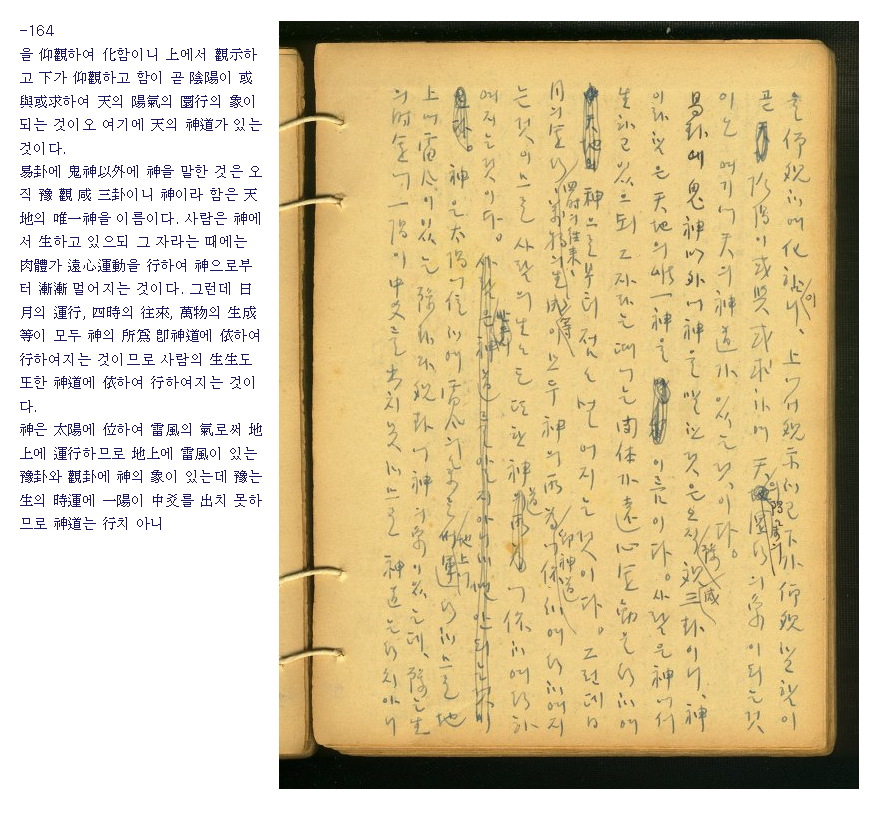 -164
을 仰觀하여 化함이니 上에서 觀示하
고 下가 仰觀하고 함이 곧 陰陽이 或
與或求하여 天의 陽氣의 圜行의 象이
되는 것이오 여기에 天의 神道가 있는
것이다.
易卦에 鬼神以外에 神을 말한 것은 오
직 豫 觀 咸 三卦이니 神이라 함은 天
地의 唯一神을 이름이다. 사람은 神에
서 生하고 있으되 그 자라는 때에는
肉體가 遠心運動을 行하여 神으로부
터 漸漸 멀어지는 것이다. 그런데 日
月의 運行, 四時의 往來, 萬物의 生成
等이 모두 神의 所爲 卽神道에 依하여
行하여지는 것이므로 사람의 生生도
또한 神道에 依하여 行하여지는 것이
다.
神은 太陽에 位하여 雷風의 氣로써 地
上에 運行하므로 地上에 雷風이 있는
豫卦와 觀卦에 神의 象이 있는데 豫는
生의 時運에 一陽이 中爻를 出치 못하
므로 神道는 行치 아니
을 仰觀하여 化함이니、上에서 觀示하고 下가 仰觀하고 함이
곧 陰陽이 或與或求하여 天의 陽氣의 圜行의 象이 되는 것
이오 여기에 天의 神道가 있는 것이다。
易卦에 鬼神以外에 神을 말한 것은 오직 豫觀咸三卦이니、神
이라 함은 天地의 唯一神을 이름이다。사람은 神에서
生하고 있으되 그 자라는 때에는 肉体가 遠心運動을 行하여
神으로부터 점점 멀어지는 것이다。그런데 日
月의 運行、四時의 往來、萬物의 生成等이 모두 神의 所為 即神道에 依하여 行하여지
는 것이므로 사람의 生生도 또한 神道에 依하여 行하
여지는 것이다。
神은 太陽에 位하여 雷風의 氣로써 地上에 運行하므로 地
上에 雷風이 있는 豫卦와 觀卦에 神의 象이 있는데、豫는 生
의 時運에 一陽이 中爻를 出치 못하므로 神道는 行치 아니